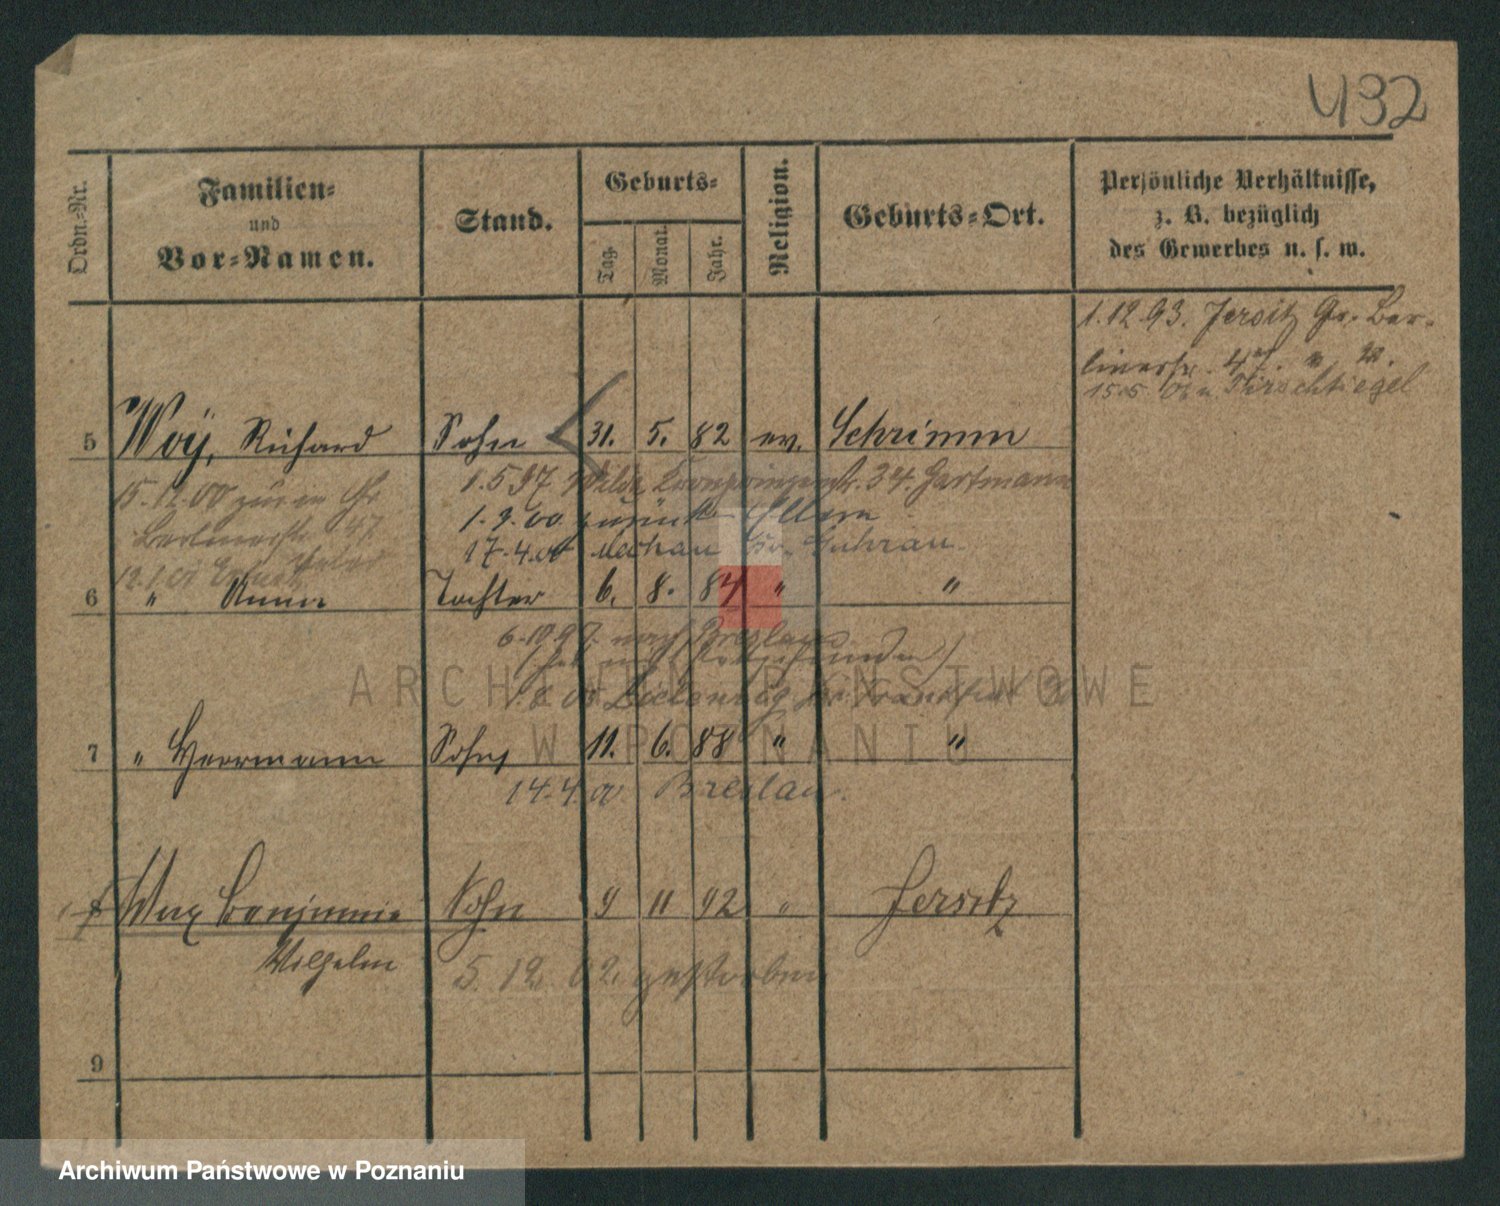 432
Ordn.-Nr.
Familien-
und
Vor-Namen.
Stand.
Geburts-
Tag.
Monat.
Jahr.
Religion.
Geburts-Ort.
Persönliche Verhältnisse,
z. B. bezüglich
des Gewerbes u. s. w.
1.12.93. Jersitz Gr. Ber-
linerstr. 47
15.5. Tirschtiegel
5 Woÿ, Richard Sohn 31. 5. 82 ev. Schrimm
1.5 97 34. Hartmann
15.12.00 Gr
1.9.00 zurück Eltern
Berlinerstr. 47
17.4.00 Guhrau
6 " Anna Tochter 6. 8. 84 " "
6.10.97. nach Breslau
ARCHIWUM PAŃSTWOWE
W POZNANIU
7 " Herrmann Sohn 11. 6. 88 " "
14.4.00 Breslau.
8 Max Benjamin Sohn 9 11 92 " Jersitz
Wilhelm 5. 12. 02. gestorben
9
Archiwum Państwowe w Poznaniu